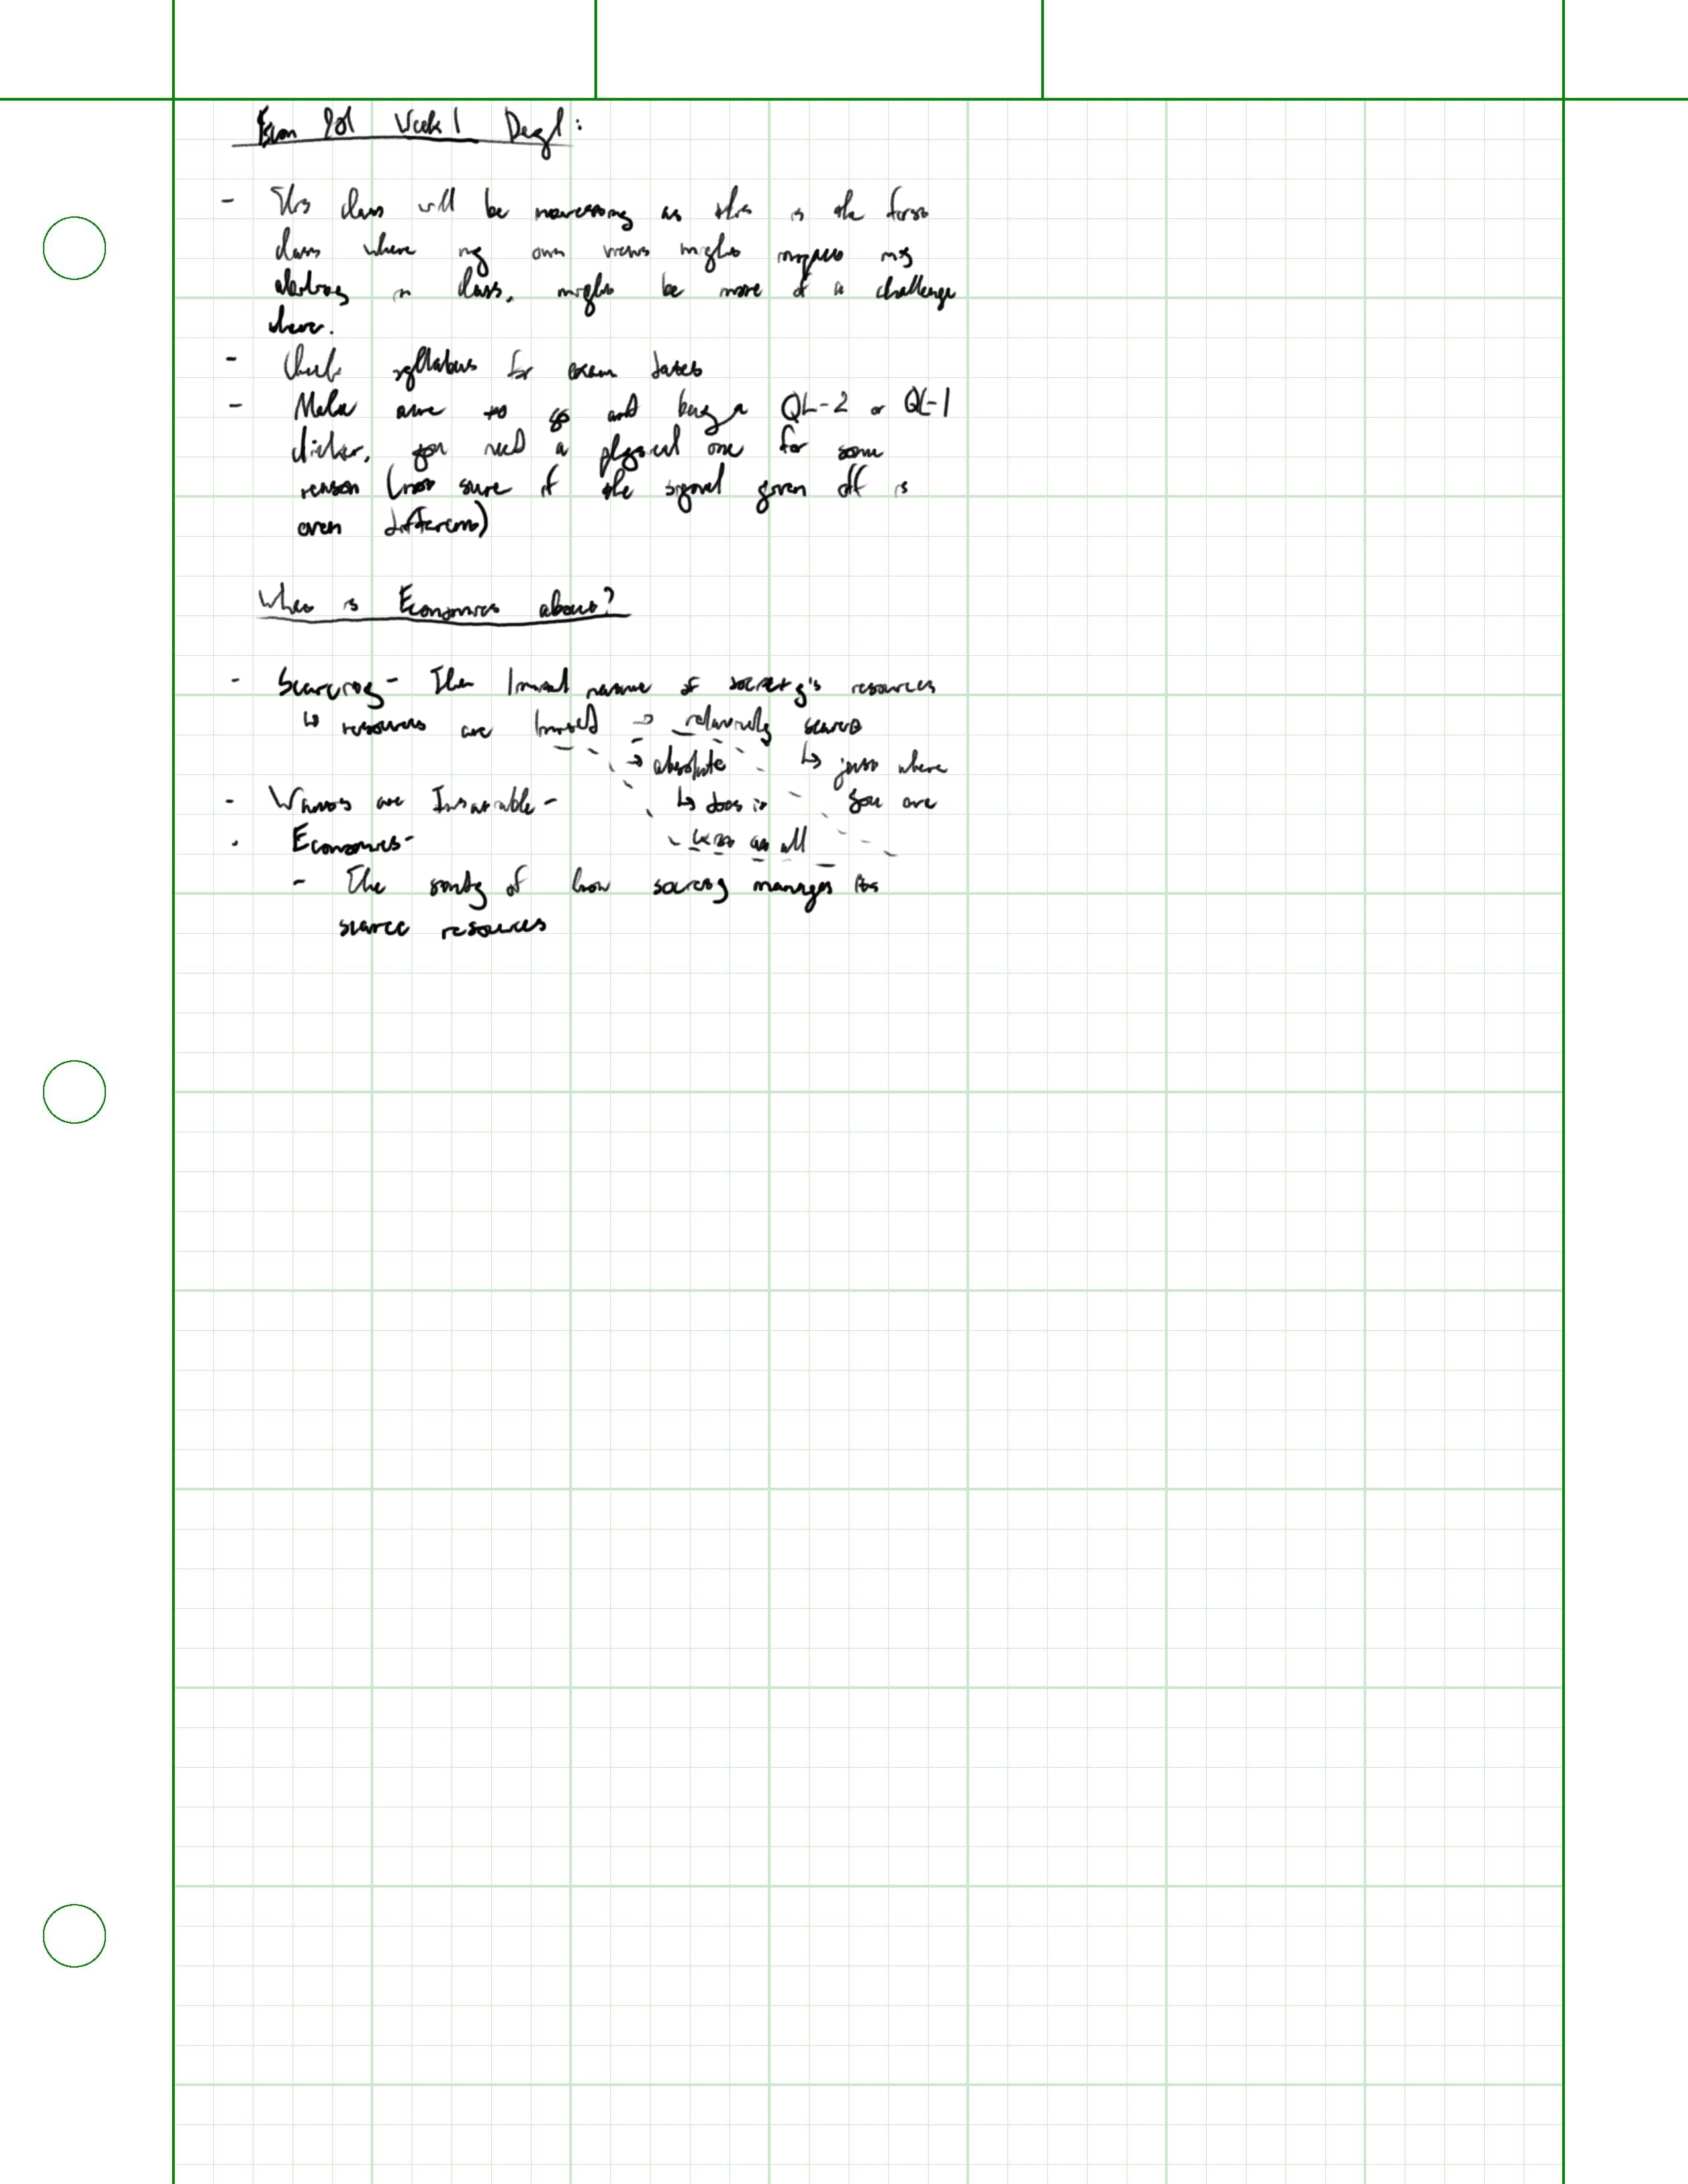 Econ 201 Week 1 Day 1:
- This class will be interesting as this is the first
class where my own views might impact my
ability in class, might be more of a challenge
there.
- Check syllabus for exam dates
- Make sure to go and buy a QL-2 or QL-1
clicker, you need a physical one for some
reason (not sure if the signal given off is
even different)
What is Economics about?
- Scarcity - The limited nature of society's resources
↳ resources are limited → relatively scarce
→ absolute ↳ just where
you are
↳ does it
exist at all
- Wants are Insatiable -
- Economics -
- The study of how society manages its
scarce resources